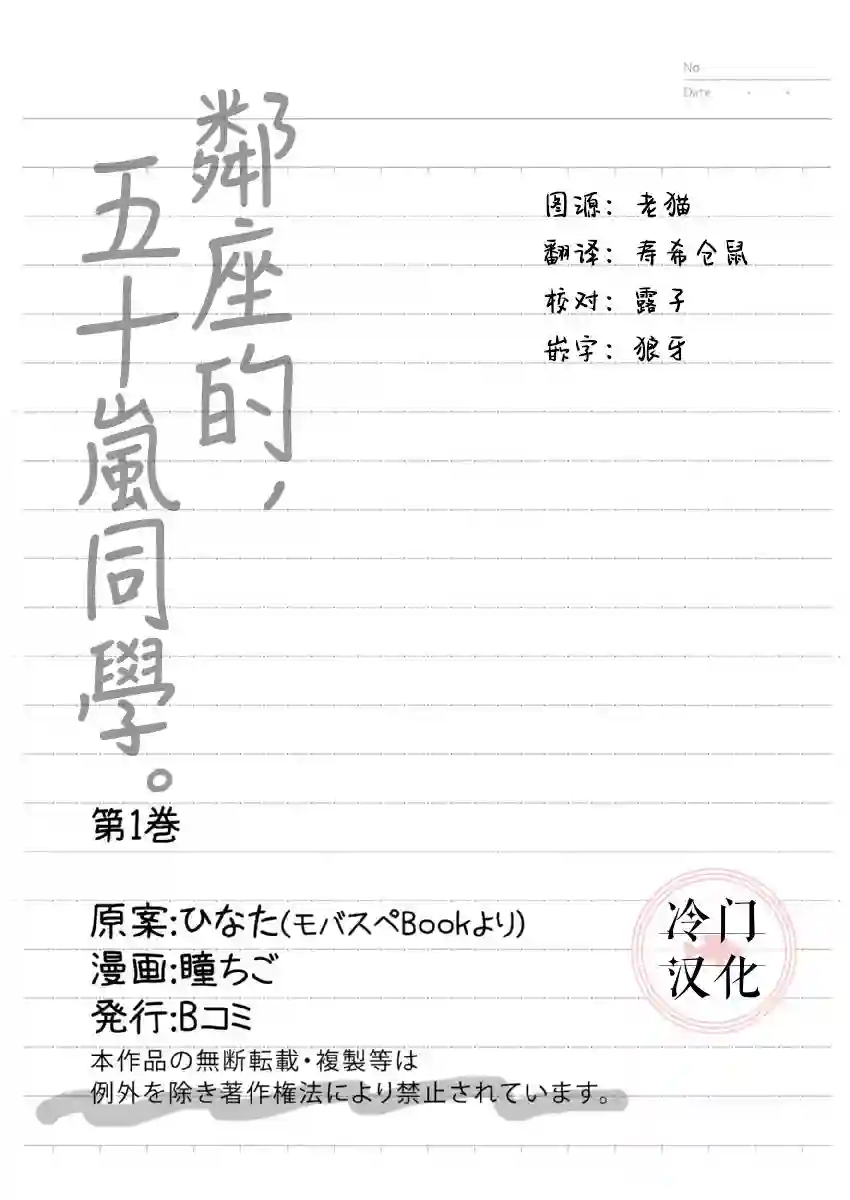 No
Date ・ ・
鄰座的，
五十嵐同學。
图源：老猫
翻译：寿希仓鼠
校对：露子
嵌字：狼牙
第1巻
原案:ひなた(モバスペBookより)
漫画:瞳ちご
発行:Bコミ
本作品の無断転載・複製等は
例外を除き著作権法により禁止されています。
冷门
汉化